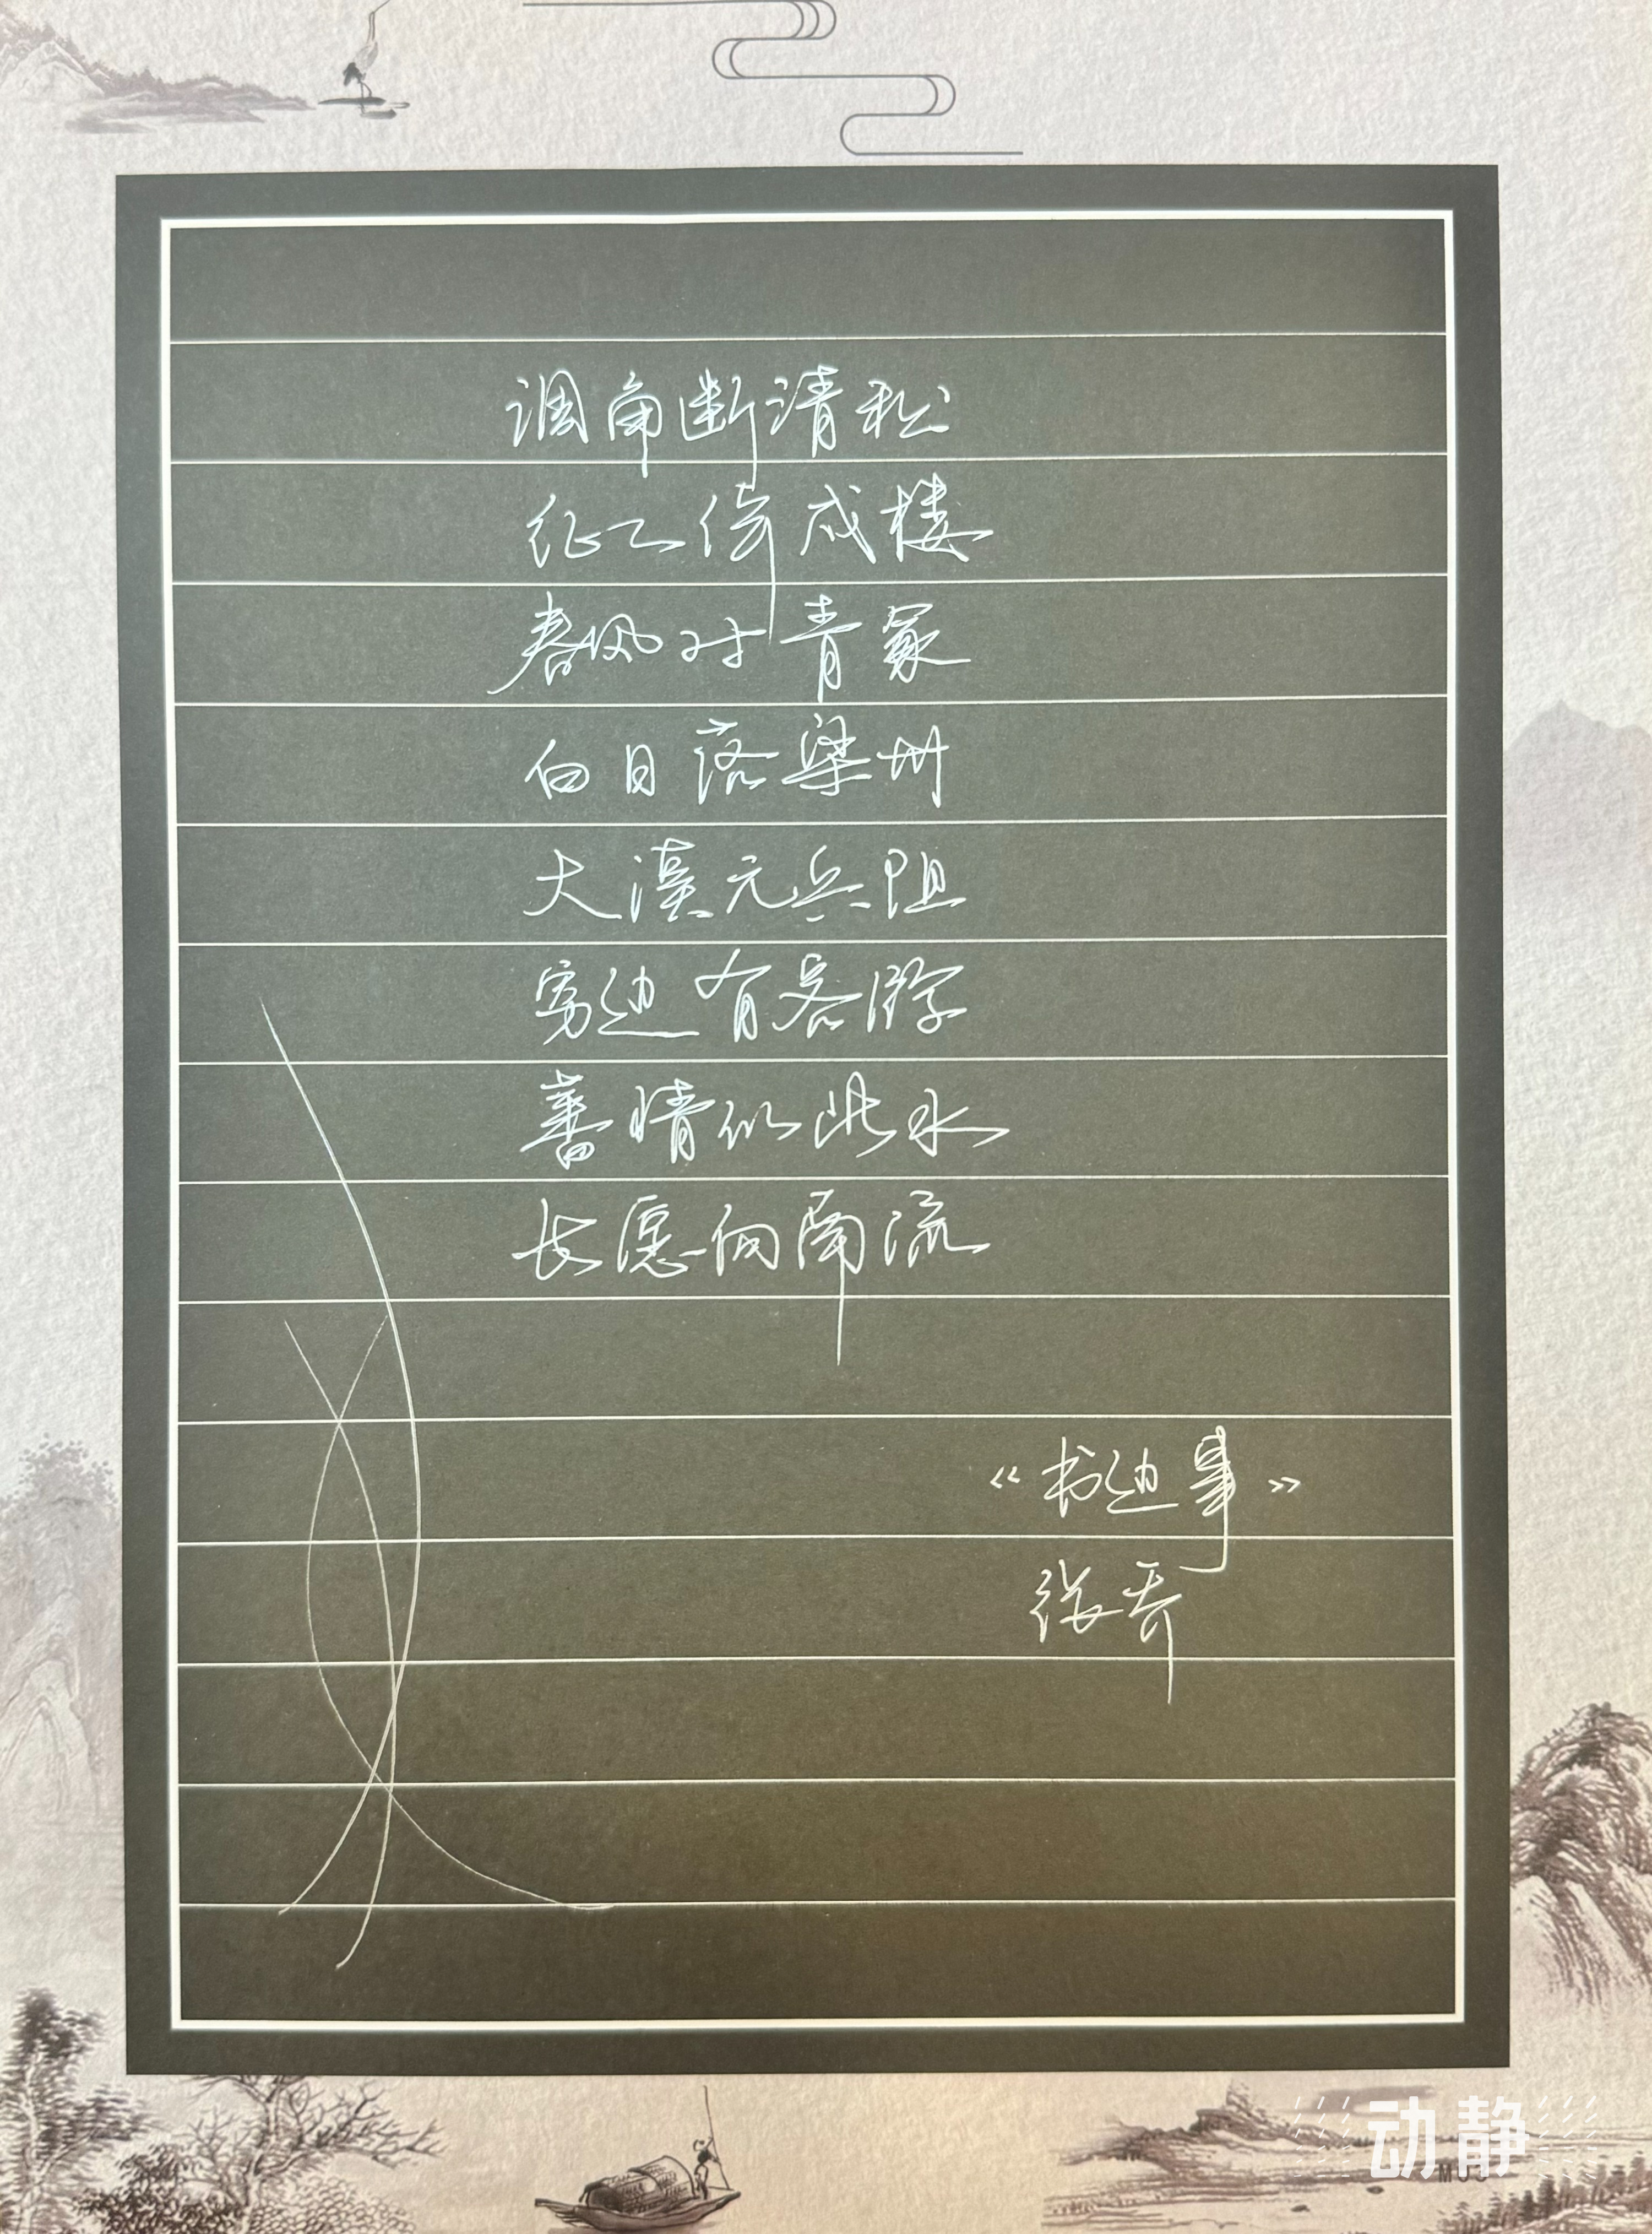 调角断清秋
征人倚戍楼
春风对青冢
白日落梁州
大漠无兵阻
穷边有客游
蕃情似此水
长愿向南流
《书边事》
张乔
动静